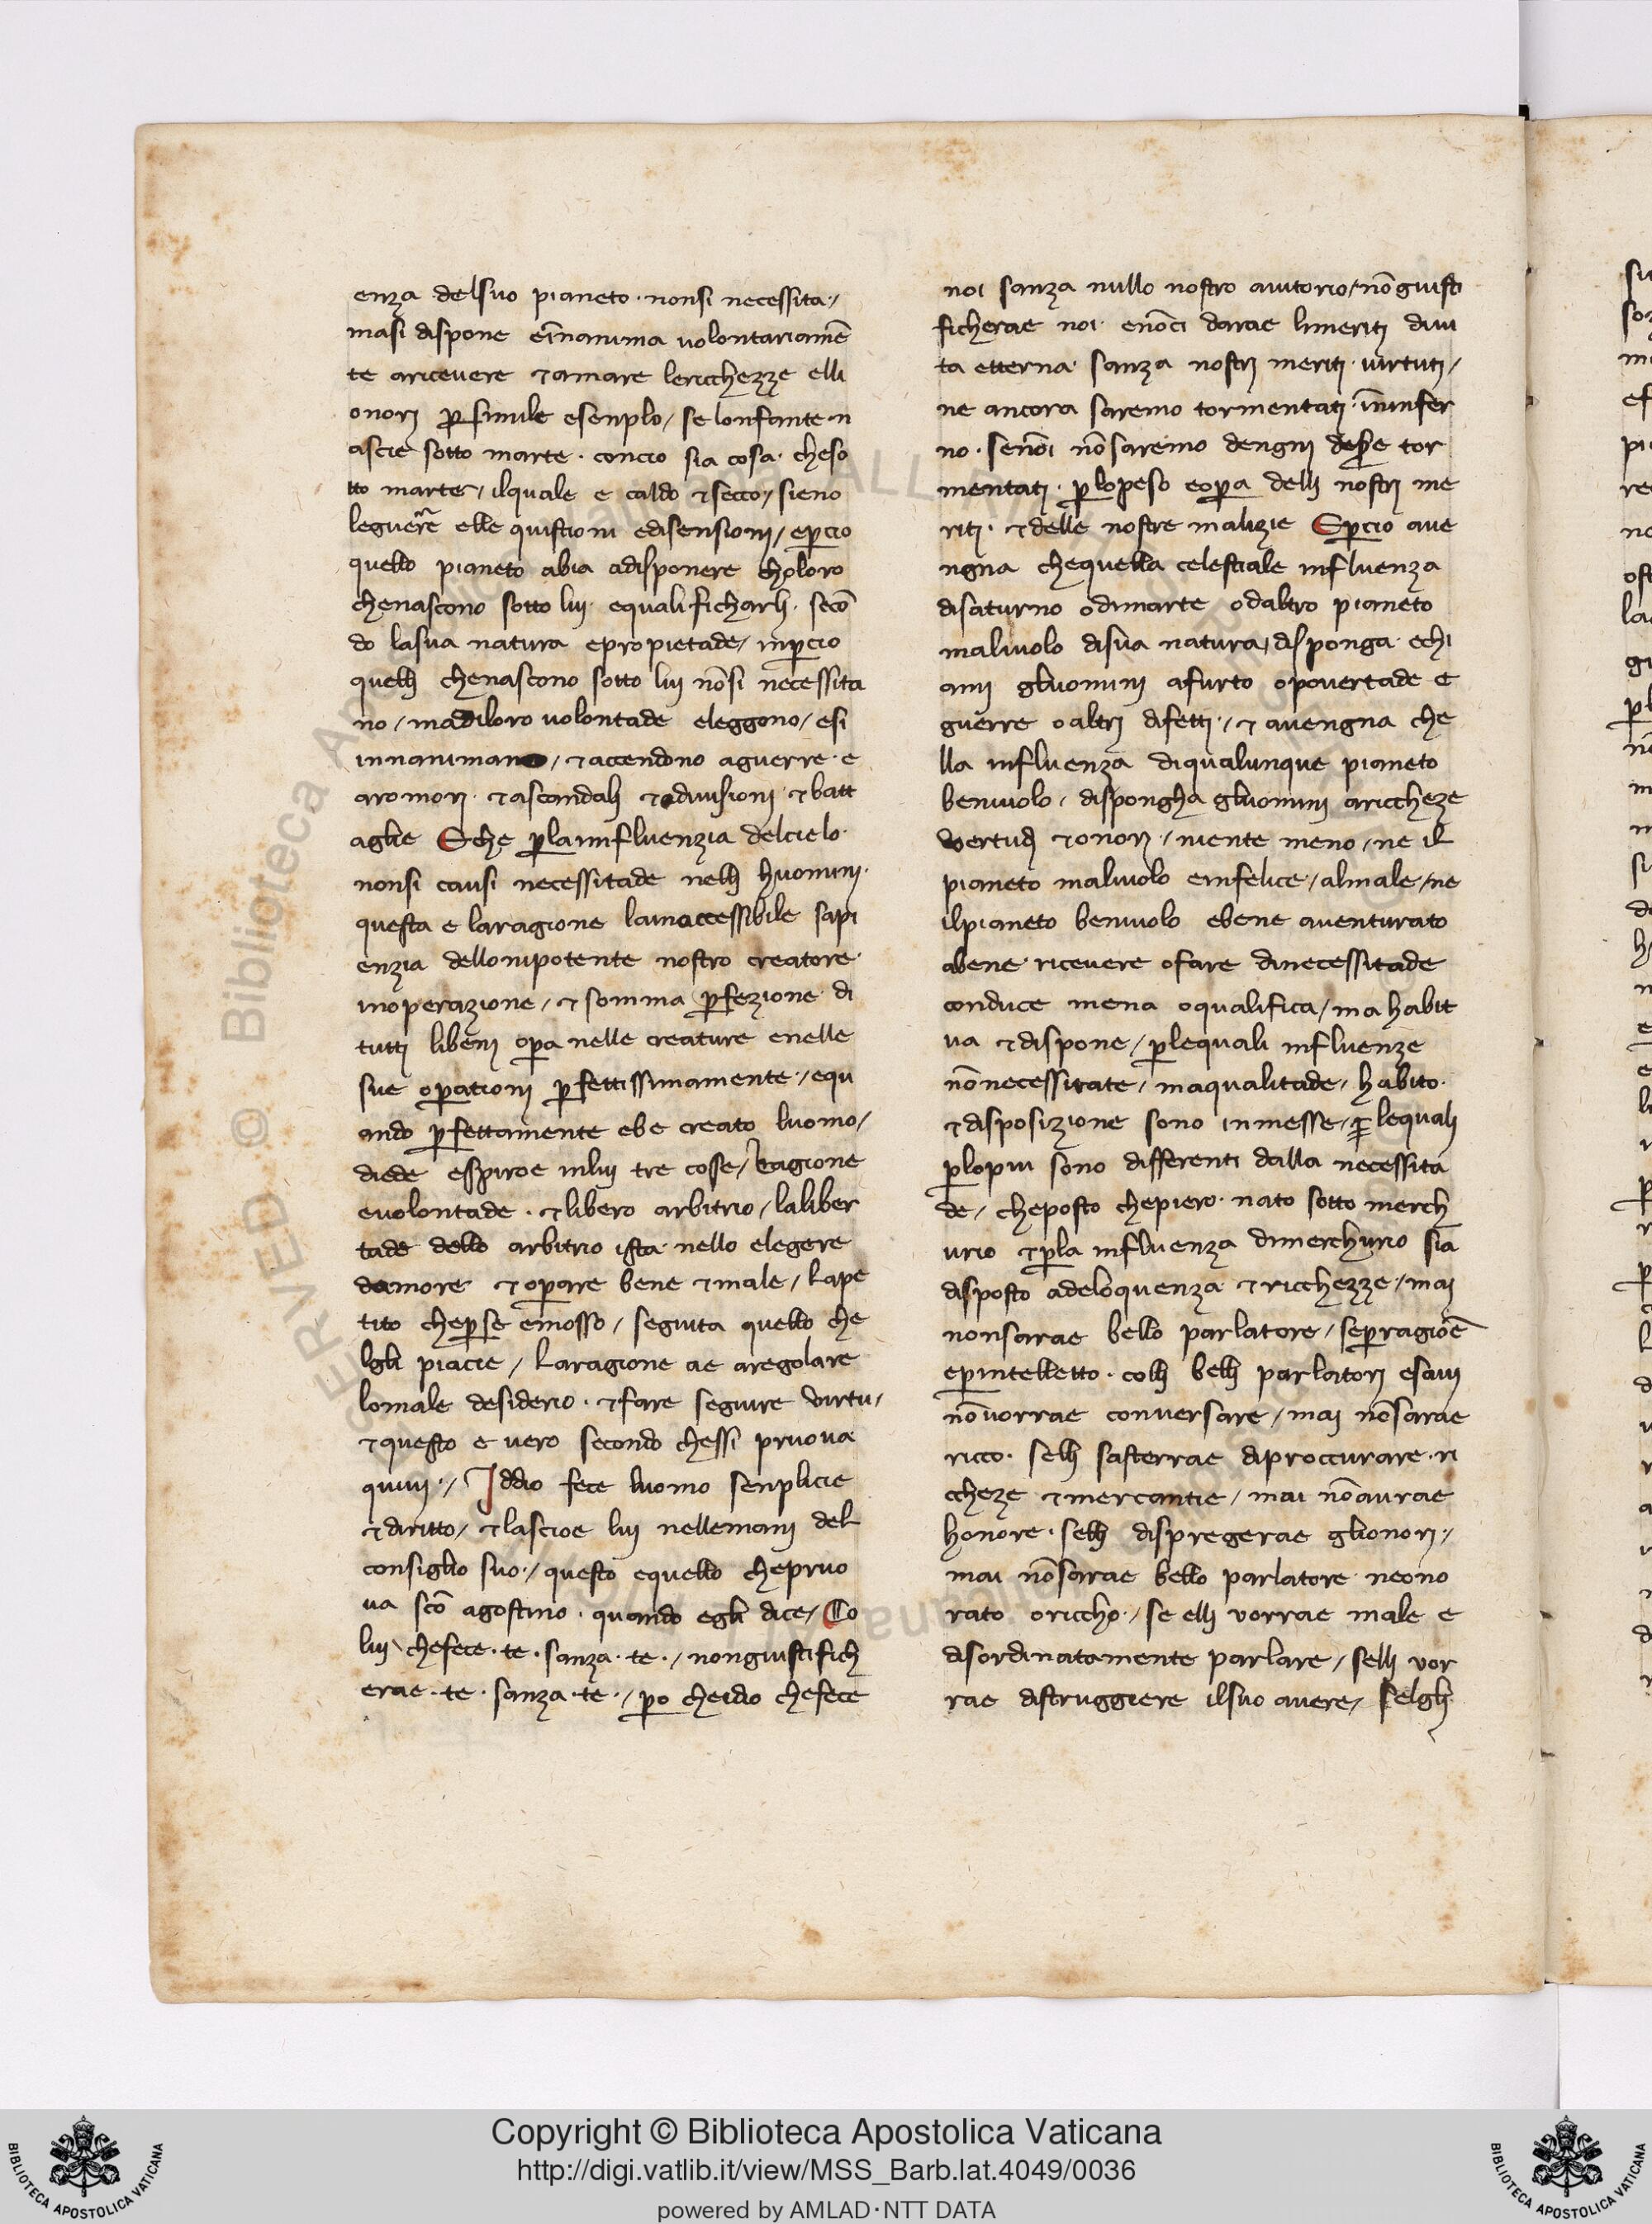 enza delsuo pianeto · nonsi necessita ·/
masi dispone eīnanima volontariamē
te aricevere ⁊amare lericchezze elli
onorj ꝑ simile esenplo / se lonfante n
ascie sotto marte · concio sia cosa · cheso
tto marte / ilquale e caldo ⁊secco / sieno
leguerre elle quistioni edisensionj / eꝑcio
quello pianeto abia adisponere choloro
chenascono sotto luj · equalificharlj · secō
do lasua natura epropietade / inꝑcio
quellj chenascono sotto luj nōsi necessita
no / madiloro volontade eleggono / esi
innaniman / ⁊accendono aguerre · e
aromorj · ⁊ascandalj ⁊adivisionj · ⁊batt
aglie Eche ꝑlainfluenzia delcielo ·
nonsi causi necessitade nellj huominj ·
questa e laragione lainaccessibile sapi
enzia dellonipotente nostro creatore ·
inoperazione / ⁊ somma ꝑfezione di
tuttj libenj oꝑa nelle creature enelle
sue oꝑationj ꝑfettissimamente ·/ equ
ando ꝑfettamente ebe creato luomo /
diede espiroe inluj tre cosse / Ragione
evolontade · ⁊libero arbitrio / laliber
tade dello arbitrio ista nello elegere
damore ⁊oꝑare bene ⁊male / Lape
tito cheꝑse emosso / seguita quello che
lgli piacie / Laragione ae aregolare
lomale desiderio · ⁊fare seguire virtu /
⁊questo e vero secondo chessi pruova
quivj ·/ Iddio fece luomo senplicie
⁊diritto / ⁊lascioe luj nellemanj del
consiglio suo ·/ questo equello chepruo
va scō agostino · quando egli dice / Co
luj chefece · te · sanza · te ·/ nongiustifich
erae · te · sanza · te ·/ ꝑo cheidio chefece
noi sanza nullo nostro aiutorio / nōgiusti
ficherae noi · enōci darae limeritj divi
ta etterna · sanza nostrj meritj · virtutj /
ne ancora saremo tormentatj · īninfer
no · senōi nōsaremo dengnj desse tor
mentatj · ꝑlopeso eoꝑa dellj nostrj me
riti · ⁊delle nostre malizie Eꝑcio ave
ngna chequella celestiale influenza
disaturno odimarte odaltro pianeto
malivolo disua natura / disponga echi
ami gliuominj afurto opovertade e
guerre oaltrj difetti ·/ ⁊ avengna che
lla influenza diqualunque pianeto
benivolo / dispongha gliuominj aricheze
vertudj ⁊onorj ·/ niente meno / ne il
pianeto malivolo einfelice / almale / ne
ilpianeto benivolo ebene aventurato
abene ricevere ofare dinecessitade
conduce mena oqualifica / ma habit
ua ⁊dispone / ꝑlequali influenze
nōnecessitate / maqualitade / habito ·
⁊disposizione sono inmesse / ꝑ lequalj
ꝑlopiu sono differenti dalla necessita
de / cheposto chepiero · nato sotto merch
urio ⁊ꝑla influenza dimerchurio sia
disposto adeloquenza ⁊ricchezze / maj
nonsarae bello parlatore / seꝑragiōe
eꝑintelletto · collj bellj parlatorj esavj
nōvorrae conversare / maj nōsarae
ricco · sellj sasterrae diproccurare · ri
ccheze ⁊mercantie / mai nōaurae
honore · sellj dispregerae glionorj ·/
mai nōsarae bello parlatore neono
rato oriccho ·/ se ellj vorrae male e
disordinatamente parlare / sellj vor
rae distruggiere ilsuo avere / selglj
Copyright © Biblioteca Apostolica Vaticana
http://digi.vatlib.it/view/MSS_Barb.lat.4049/0036
powered by AMLAD·NTT DATA
BIBLIOTECA APOSTOLICA VATICANA
BIBLIOTECA APOSTOLICA VATICANA